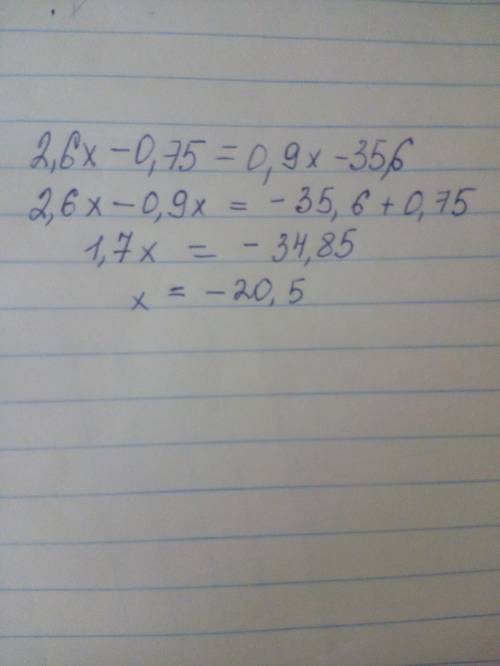 2,6x - 0,75 = 0,9x - 35,6
2,6x - 0,9x = - 35,6 + 0,75
1,7x = - 34,85
x = - 20,5